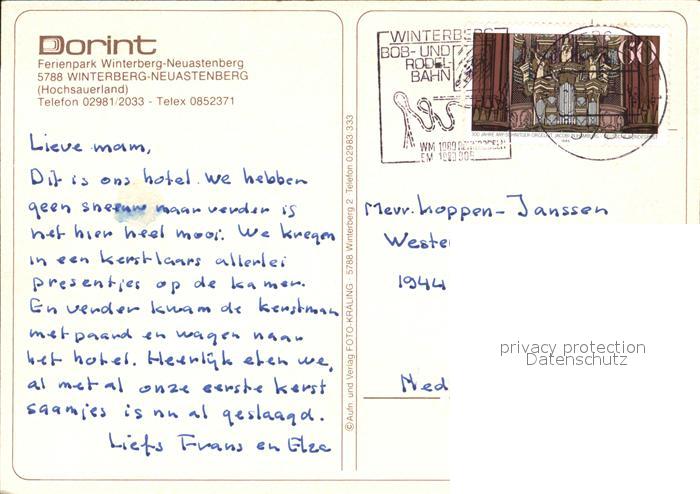 Dorint
Ferienpark Winterberg-Neuastenberg
5788 WINTERBERG-NEUASTENBERG
(Hochsauerland)
Telefon 02981/2033 - Telex 0852371
Lieve mam,
Dit is ons hotel. We hebben
geen sneeuw maar verder is
het hier heel mooi. We kregen
in een kerstlaars allerlei
presentjes op de kamer.
En verder kwam de kerstman
met paard en wagen naar
het hotel. Heerlijk eten we,
al met al onze eerste kerst
saampjes is nu al geslaagd.
Liefs Frans en Elze
©Aufn. und Verlag FOTO-KRÄLING · 5788 Winterberg 2 Telefon 02983-333
WINTERBERG
BOB- UND
RODEL-
BAHN
WM 1989
EM 1989 BOB
60
Mevr. Loppen-Janssen
Weste
1944
Ned
privacy protection
Datenschutz